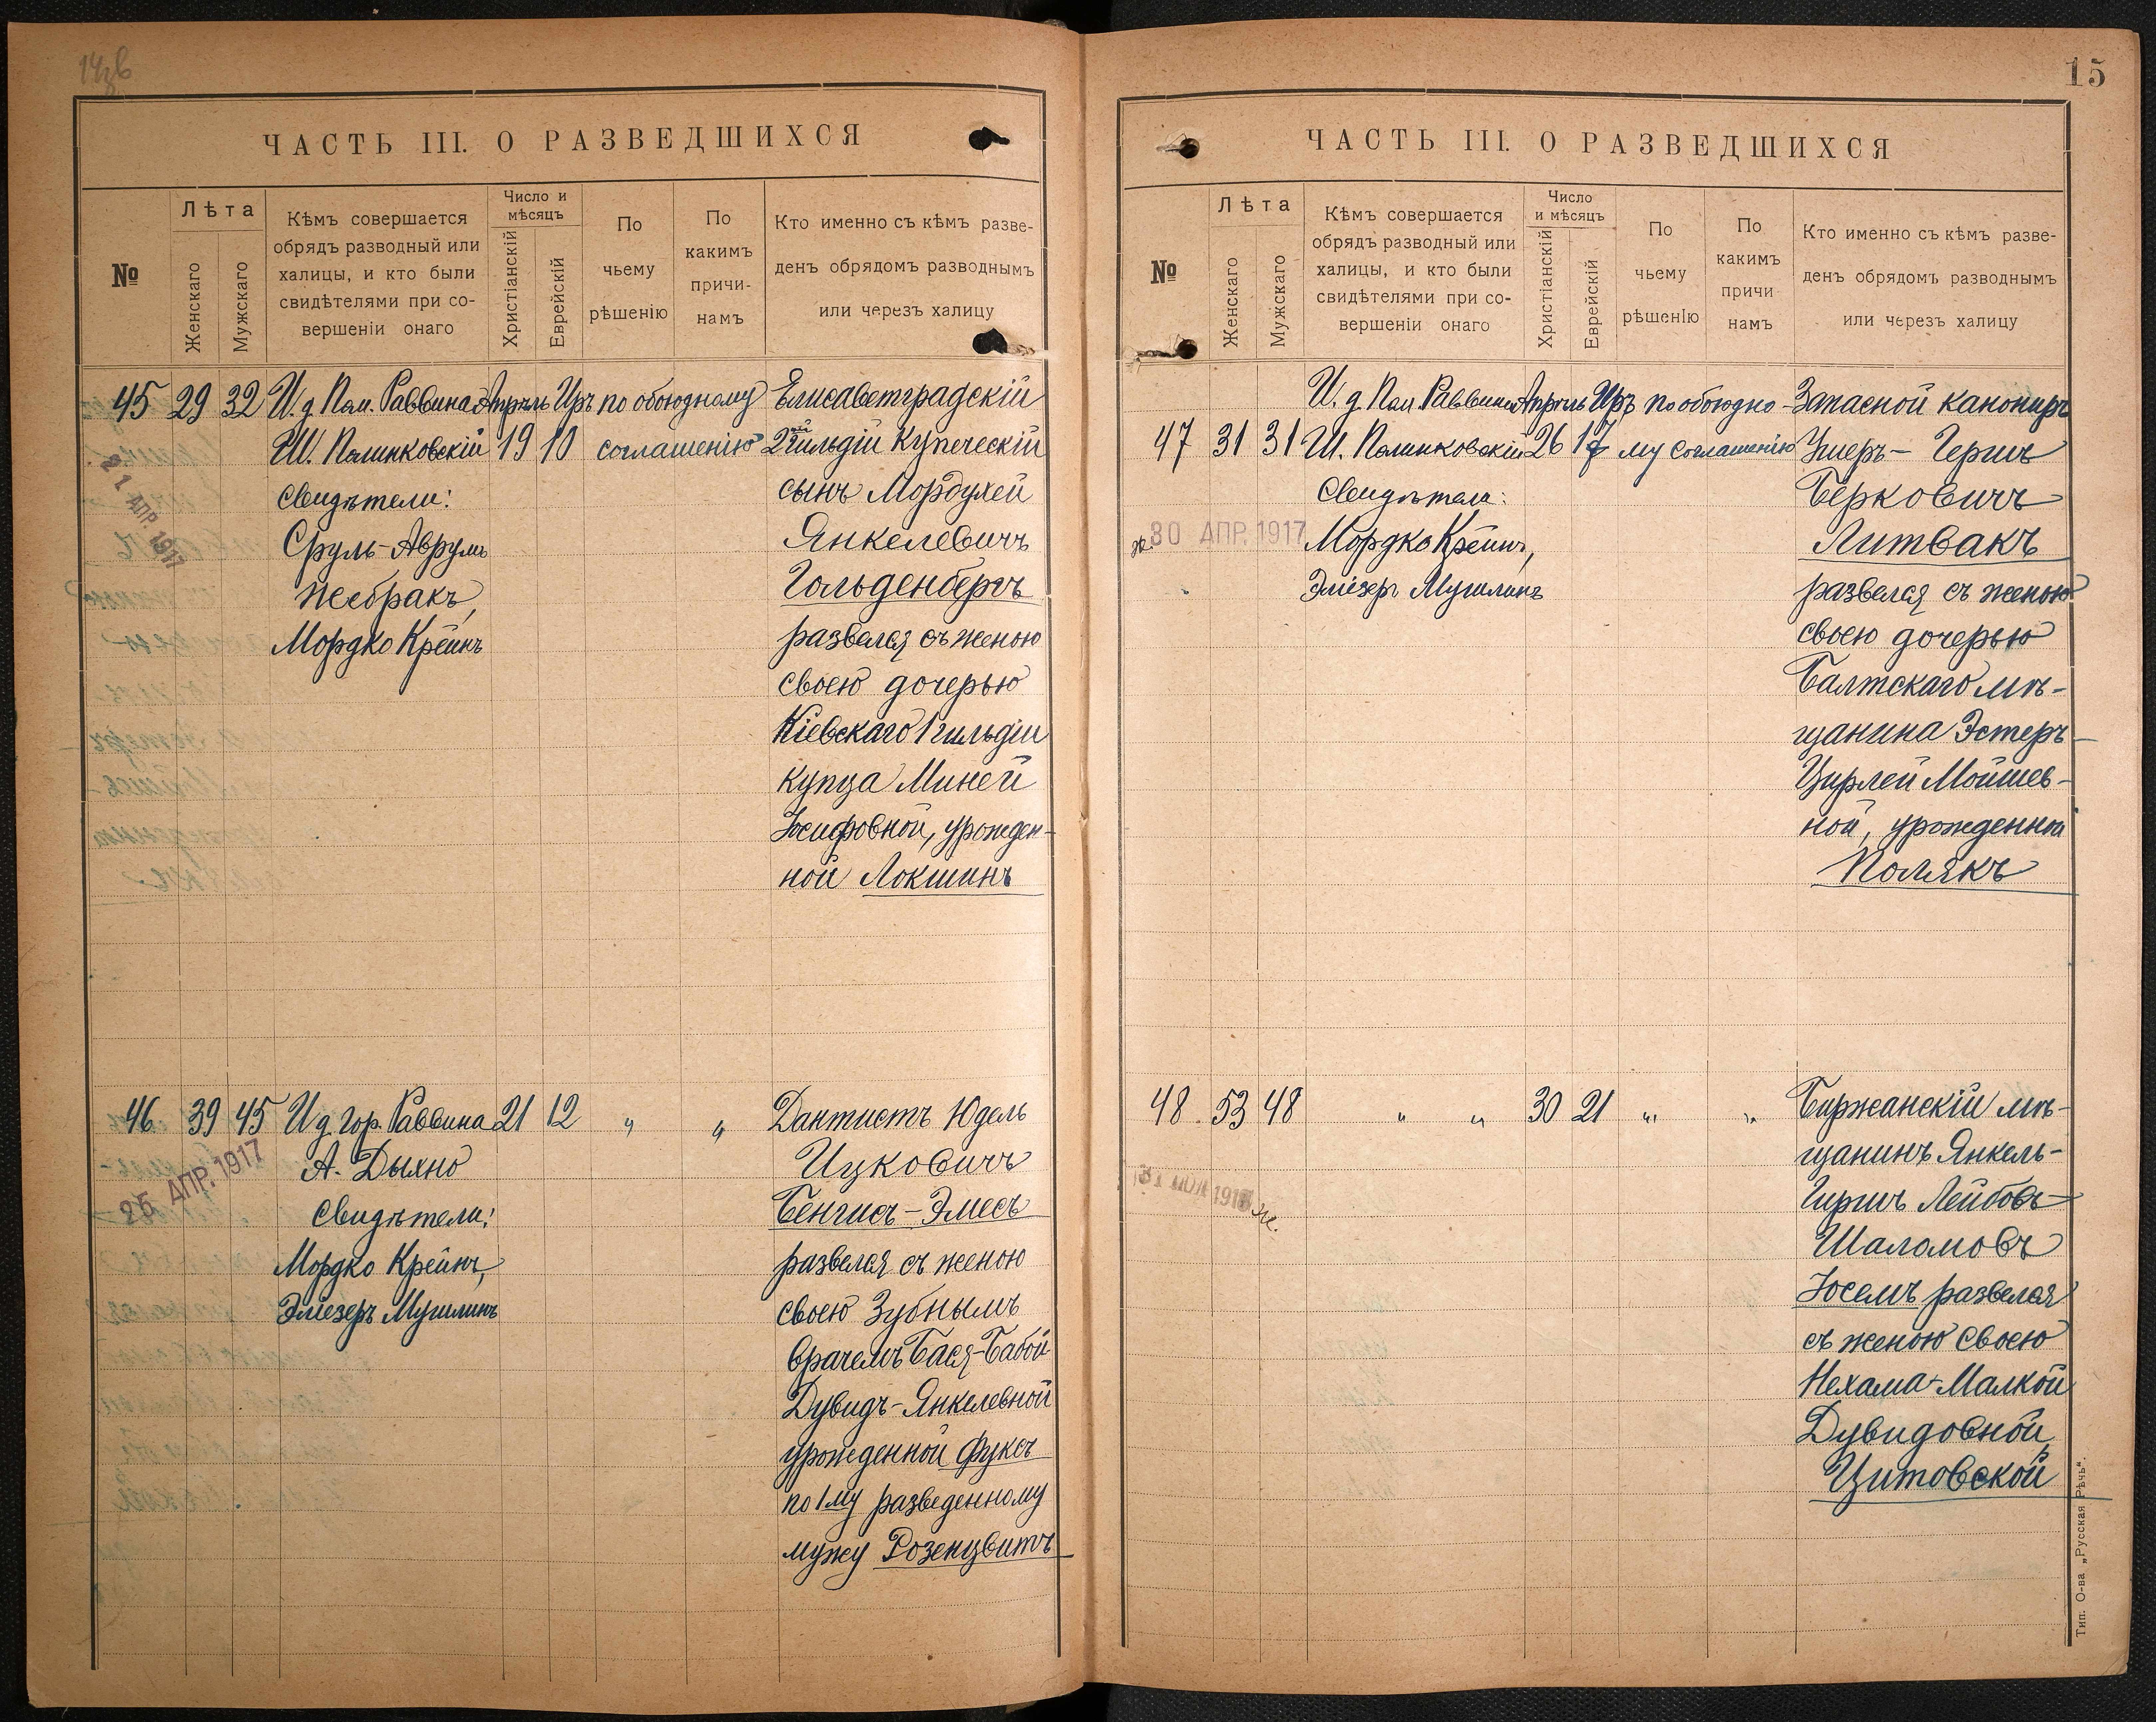 14об
ЧАСТЬ III. О РАЗВЕДШИХСЯ
№
Лѣта
Женскаго
Мужскаго
Кѣмъ совершается
обрядъ разводный или
халицы, и кто были
свидѣтелями при со-
вершеніи онаго
Число и
мѣсяцъ
Христіанскій
Еврейскій
По
чьему
рѣшенію
По
какимъ
причи-
намъ
Кто именно съ кѣмъ разве-
денъ обрядомъ разводнымъ
или черезъ халицу
45 29 32 И. д. Пом. Раввина Апрѣль Иръ по обоюдному Елисаветградскій
19 10 соглашенію 2ой гильдіи купеческій
свидѣтели: сынъ Мордухей
21 АПР. 1917
Сруль-Аврумъ Янкелевичъ
Жебракъ, Гольденбергъ
Мордко Крейнъ развелся съ женою
своею дочерью
Кіевскаго 1 гильдіи
купца Миней
Іосифовной, урожден-
ной Локшинъ
46 39 45 И д. Гор. Раввина 21 12 " " Дантистъ Юдель
А. Дыхно Ицковичъ
25 АПР. 1917
Свидѣтели: Бенгисъ-Элмесъ
Мордко Крейнъ, развелся съ женою
Эліезеръ Мушлинъ своею Зубнымъ
врачемъ Бася-Бабой
Дувидъ-Янкелевной
урожденной Фуксъ
по 1му разведенному
мужу Розенцвитъ
15
ЧАСТЬ III. О РАЗВЕДШИХСЯ
№
Лѣта
Женскаго
Мужскаго
Кѣмъ совершается
обрядъ разводный или
халицы, и кто были
свидѣтелями при со-
вершеніи онаго
Число
и мѣсяцъ
Христіанскій
Еврейскій
По
чьему
рѣшенію
По
какимъ
причи
намъ
Кто именно съ кѣмъ разве-
денъ обрядомъ разводнымъ
или черезъ халицу
И. д. Пом. Раввина Апрѣль Иръ по обоюдно- Запасной канониръ
47 31 31 26 17 му соглашенію Ушеръ- Гершъ
Свидѣтели: Берковичъ
30 АПР. 1917 Мордко Крейнъ, Литвакъ
Эліезеръ Мушлинъ развелся съ женою
своею дочерью
Балтскаго мѣ-
щанина Эстеръ-
Цирлей Мойшев-
ной, урожденной
Полякъ
48 53 48 " " 30 21 " " Биржанскій мѣ-
щанинъ Янкель-
Гиршъ Лейбовъ-
Шаломовъ
Іосемъ развелся
съ женою своею
Нехама-Малкой
Дувидовной
Цитовской
Тип. О-ва „Русская Рѣчь“.